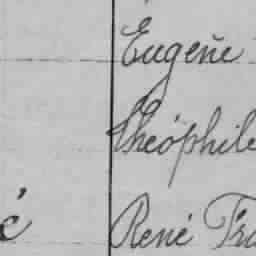 Eugène
Théophile
é René Fra